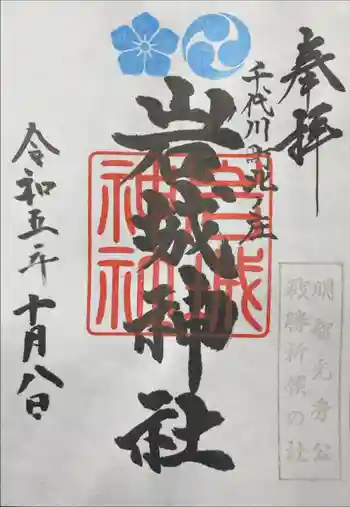 奉拝
千代川町北ノ庄
岩城神社
岩城神社
令和五年十月八日
明智光秀公
戦勝祈願の社